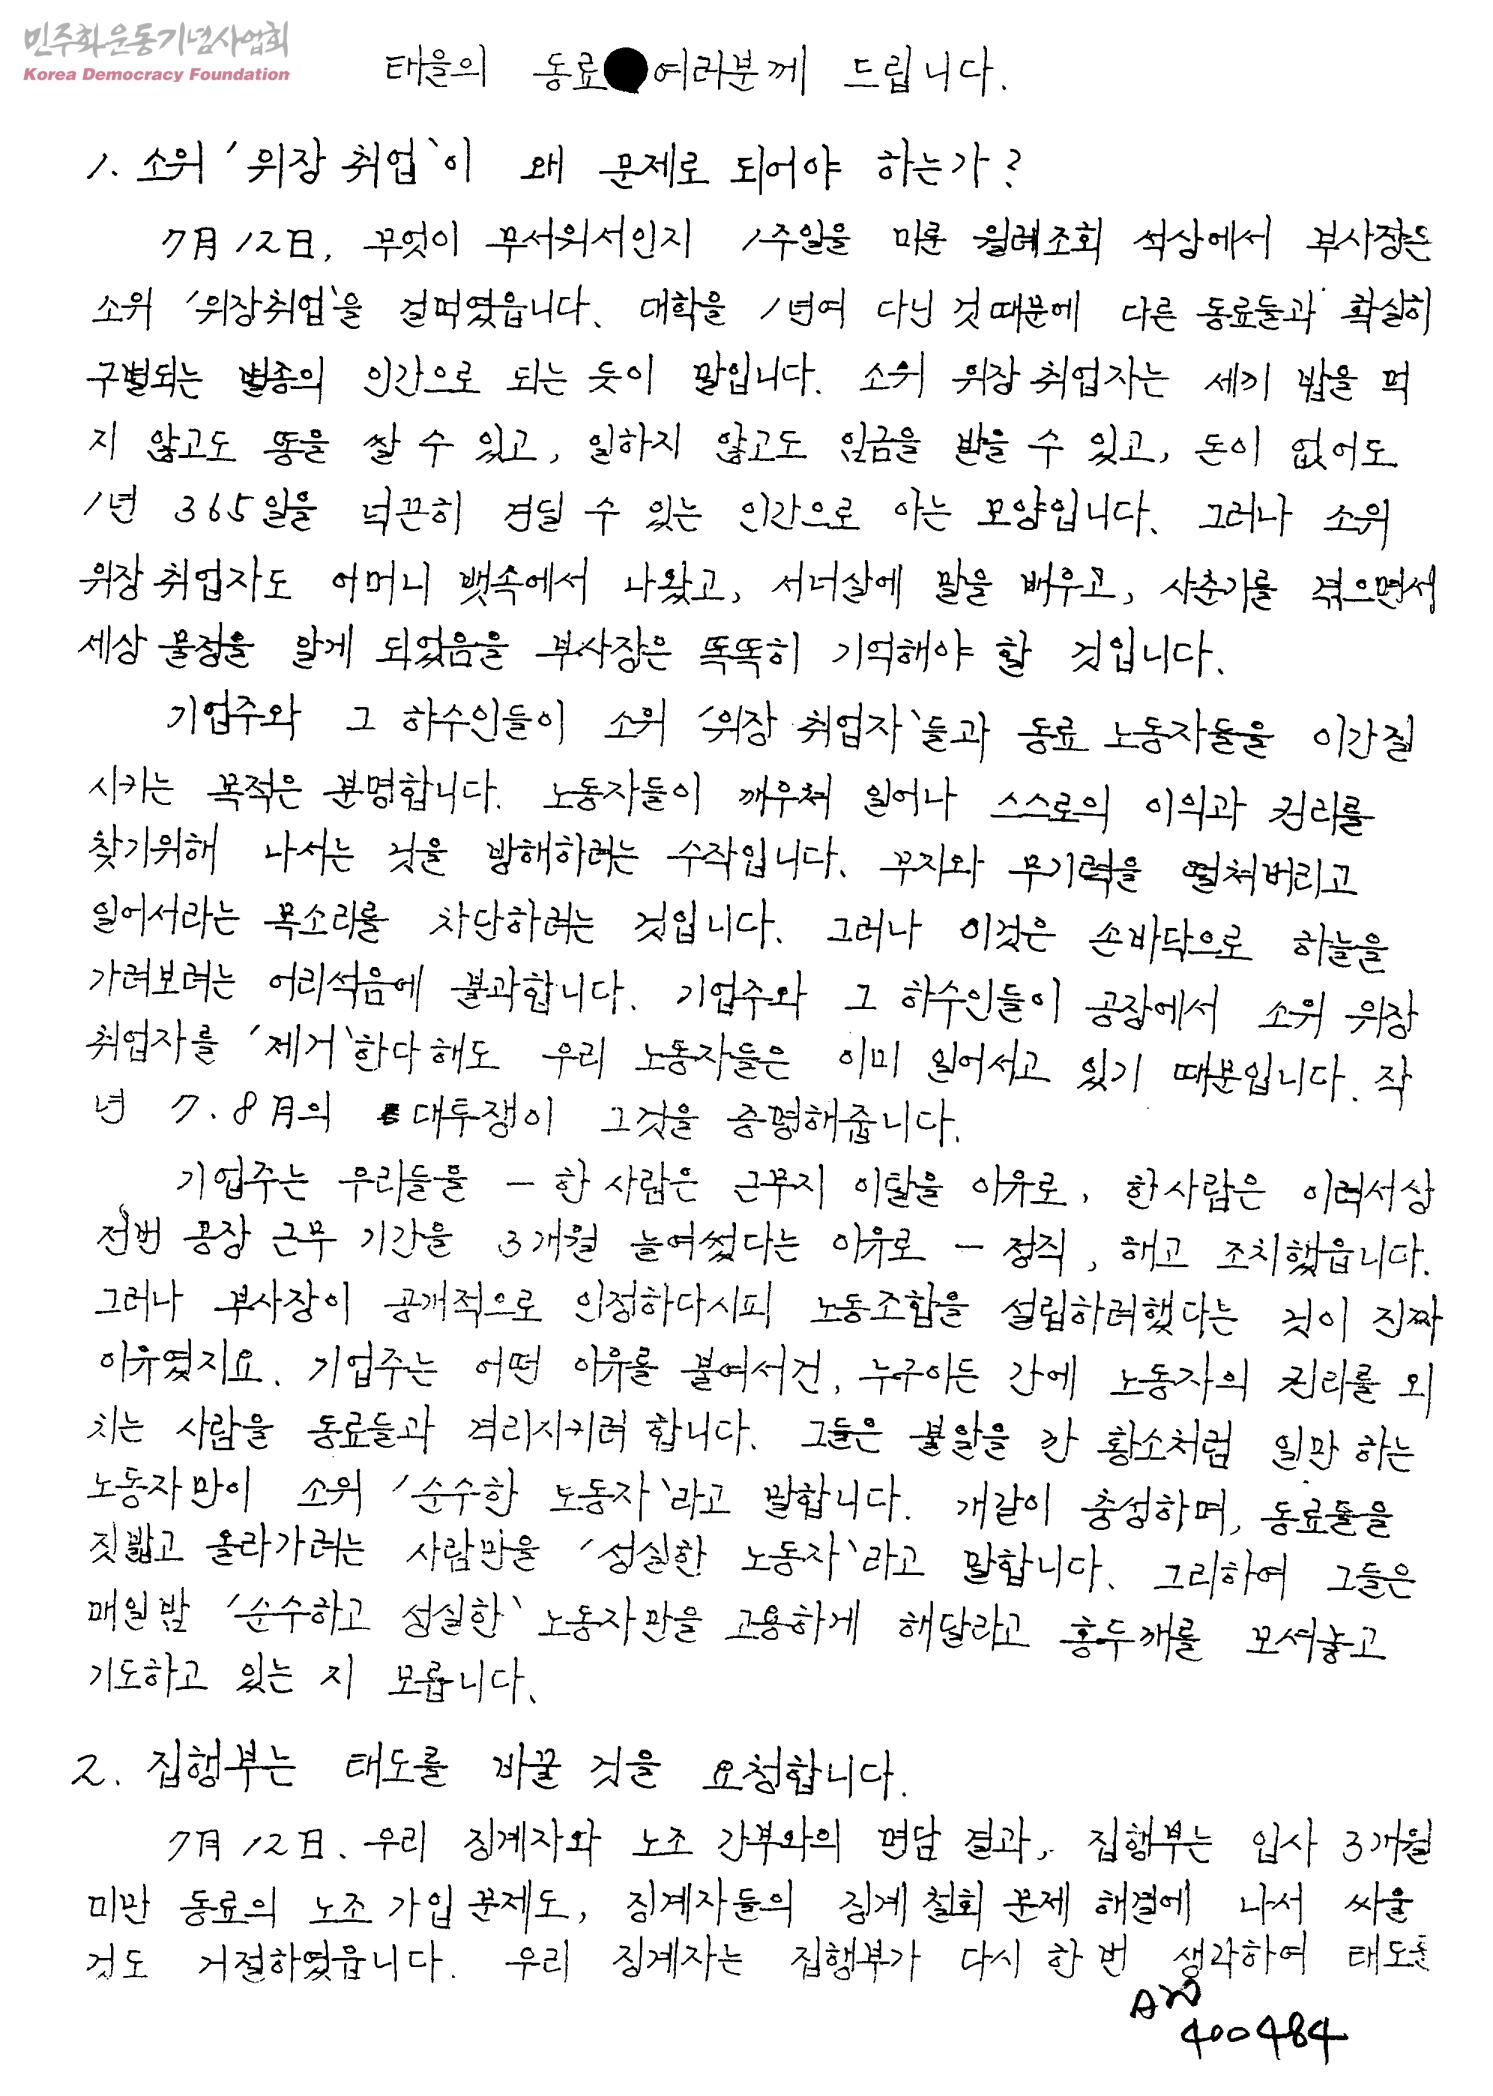 민주화운동기념사업회
Korea Democracy Foundation
태을의 동료 여러분께 드립니다.
1. 소위 '위장 취업'이 왜 문제로 되어야 하는가?
7月 12日, 무엇이 무서워서인지 1주일을 미룬 월례조회 석상에서 부사장은
소위 '위장취업'을 걸먹였읍니다. 대학을 1년여 다닌 것 때문에 다른 동료들과 확실히
구별되는 별종의 인간으로 되는 듯이 말입니다. 소위 위장 취업자는 세끼 밥을 먹
지 않고도 똥을 쌀 수 있고, 일하지 않고도 임금을 받을 수 있고, 돈이 없어도
1년 365일을 넉끈히 견딜 수 있는 인간으로 아는 모양입니다. 그러나 소위
위장 취업자도 어머니 뱃속에서 나왔고, 서너살에 말을 배우고, 사춘기를 겪으면서
세상 물정을 알게 되었음을 부사장은 똑똑히 기억해야 할 것입니다.
기업주와 그 하수인들이 소위 '위장 취업자'들과 동료 노동자들을 이간질
시키는 목적은 분명합니다. 노동자들이 깨우쳐 일어나 스스로의 이익과 권리를
찾기위해 나서는 것을 방해하려는 수작입니다. 무지와 무기력을 떨쳐버리고
일어서라는 목소리를 차단하려는 것입니다. 그러나 이것은 손바닥으로 하늘을
가려보려는 어리석음에 불과합니다. 기업주와 그 하수인들이 공장에서 소위 위장
취업자를 '제거'한다해도 우리 노동자들은 이미 일어서고 있기 때문입니다. 작
년 7.8月의 대투쟁이 그것을 증명해줍니다.
기업주는 우리들을 - 한 사람은 근무지 이탈을 이유로, 한사람은 이력서상
전번 공장 근무 기간을 3개월 늘여썼다는 이유로 - 정직, 해고 조치했읍니다.
그러나 부사장이 공개적으로 인정하다시피 노동조합을 설립하려했다는 것이 진짜
이유였지요. 기업주는 어떤 이유를 붙여서건, 누구이든 간에 노동자의 권리를 외
치는 사람을 동료들과 격리시키려 합니다. 그들은 불알을 깐 황소처럼 일만 하는
노동자만이 소위 '순수한 노동자'라고 말합니다. 개같이 충성하며, 동료들을
짓밟고 올라가려는 사람만을 '성실한 노동자'라고 말합니다. 그리하여 그들은
매일밤 '순수하고 성실한' 노동자만을 고용하게 해달라고 홍두깨를 모셔놓고
기도하고 있는 지 모릅니다.
2. 집행부는 태도를 바꿀 것을 요청합니다.
7月 12日. 우리 징계자와 노조 간부와의 면담 결과, 집행부는 입사 3개월
미만 동료의 노조 가입 문제도, 징계자들의 징계 철회 문제 해결에 나서 싸울
것도 거절하였읍니다. 우리 징계자는 집행부가 다시 한 번 생각하여 태도를
400484